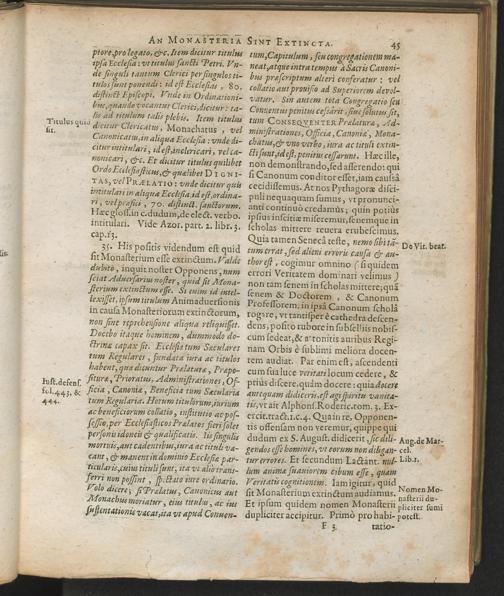 AN MONASTERIA SINT EXTINCTA. 45
ptore, pro legato, &c. Item dicitur titulus
ipsa Ecclesia: vt titulus sancti Petri. Vn-
de singuli tantum Clerici per singulos ti-
tulos sunt ponendi: id est Ecclesias, 80.
distinct. Episcopi. Vnde in Ordinationi-
bus, quando vocantur Clerici, dicitur: ta-
lis ad titulum talis plebis. Item titulus
dicitur Clericatus, Monachatus, vel
Canonicatus in aliqua Ecclesia: vnde di-
citur intitulari, id est, inclericari, vel ca-
nonicari, &c. Et dicitur titulus quilibet
Ordo Ecclesiasticus, & qualibet DIGNI-
TAS, vel PRÆLATIO: vnde dicitur quis
intitulari in aliqua Ecclesia, id est, ordina-
ri, vel præfici, 70. distinct. sanctorum.
Hæc gloss. in c. dudum, de elect. verbo.
intitulari. Vide Azor. part. 2. libr. 3.
cap. 13.
35. His positis videndum est quid
sit Monasterium esse extinctum. Valdè
dubito, inquit noster Opponens, num
sciat Adversarius noster, quid sit Mona-
sterium extinctum esse. Si enim id intel-
lexisset, ipsum titulum Animadversionis
in causa Monasteriorum extinctorum,
non sine reprehensione aliqua reliquisset.
Docebo itaque hominem, dummodo do-
ctrinæ capax sit. Ecclesiæ tum Seculares
tum Regulares, fundata iura ac titulos
habent, qua dicuntur Prælatura, Præpo-
situra, Prioratus, Administrationes, Of-
ficia, Canonia, Beneficia tum Secularia
tum Regularia. Horum titulorum, iurium
ac beneficiorum collatio, institutio ac pos-
sessio, per Ecclesiasticos Prælatos fieri solet
personis idoneis & qualificatis. Iis singulis
mortuis, aut cadentibus, iura ac tituli va-
cant, & manent in dominio Ecclesiæ par-
ticularis, cuius tituli sunt, ita vt alio trans-
ferri non possint, spectato iure ordinario.
Volo dicere; si Prælatus, Canonicus aut
Monachus moriatur, eius titulus, ac ius
sustentationis vacat, ita vt apud Conuen-
Titulus quid
sit.
Iust. defens.
fol. 443. &
444.
tum, Capitulum, seu congregationem ma-
neat, atque intra tempus à Sacris Canoni-
bus præscriptum alteri conferatur: vel
collatio aut provisio ad Superiorem devol-
vatur. Sin autem tota Congregatio seu
Conuentus penitus cessarit, sive solutus sit,
tum CONSEQVENTER Prælatura, Ad-
ministrationes, Officia, Canonia, Mona-
chatus, & vno verbo, iura ac tituli extin-
cti sunt, id est, penitus cessarunt. Hæc ille,
non demonstrando, sed asserendo: qui
si Canonum conditor esset, iam causâ
cecidissemus. At nos Pythagoræ disci-
puli nequaquam sumus, vt pronunci-
anti continuò credamus; quin potiùs
ipsius inscitiæ miseremur, senemque in
scholas mittere reuera erubescimus.
Quia tamen Senecâ teste, nemo sibi tã-
tum errat, sed alieni erroris causa & au-
thor est, cogimur omnino (si quidem
errori Veritatem dominari velimus)
non tam senem in scholas mittere; quã
senem & Doctorem, & Canonum
Professorem, in ipsâ Canonum scholâ
togare, vt tantisper è cathedra descen-
dens, posito rubore in subselliis nobis-
cum sedeat, & attonitis auribus Regi-
nam Orbis è sublimi meliora docen-
tem audiat. Par enim est, ascendenti
cum sua luce veritati locum cedere, &
priùs discere, quàm docere: quia docere
antequam didiceris, est agi spiritu vanita-
tis, vt ait Alphons. Roderic. tom. 3. Ex-
ercit. tract. 1. c. 4. Quain re, Opponen-
tis offensam non veremur, quippe qui
dudum ex S. August. didicerit, sic dili-
gendos esse homines, vt eorum non diligan-
tur errores. Et secundum Lactant. nul-
lum animæ suauiorem cibum esse, quàm
Veritatis cognitionem. Iam igitur, quid
sit Monasterium extinctum audiamus.
Et ipsum quidem nomen Monasterii
dupliciter accipitur. Primò pro habi-
De Vit. beat.
Aug. de Mar-
cel.
Lib. 1.
Nomen Mo-
nasterii du-
pliciter sumi
potest.
F 3 tatio-